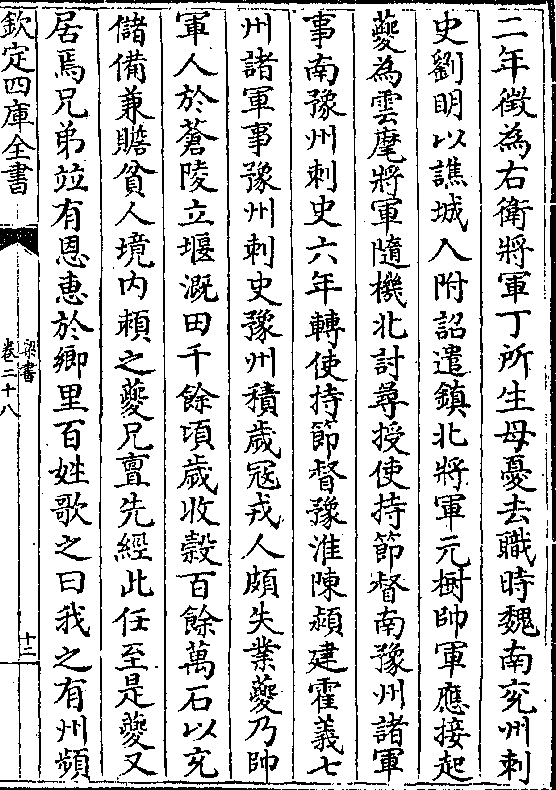 二年徵為右衛將軍丁所生母憂去職時魏南兖州刺
史劉明以譙城入附詔遣鎮北將軍元樹帥軍應接起
夔為雲麾將軍隨機北討尋授使持節督南豫州諸軍
事南豫州刺史六年轉使持節督豫淮陳潁建霍義七
州諸軍事豫州刺史豫州積歲冦戎人頗失業夔乃帥
軍人於蒼陵立堰溉田千餘頃歲收穀百餘萬石以充
儲備兼贍貧人境內賴之夔兄亶先經此任至是夔又
居焉兄弟竝有恩惠於鄉里百姓歌之曰我之有州頻
欽定四庫全書
梁書
卷二十八
十二